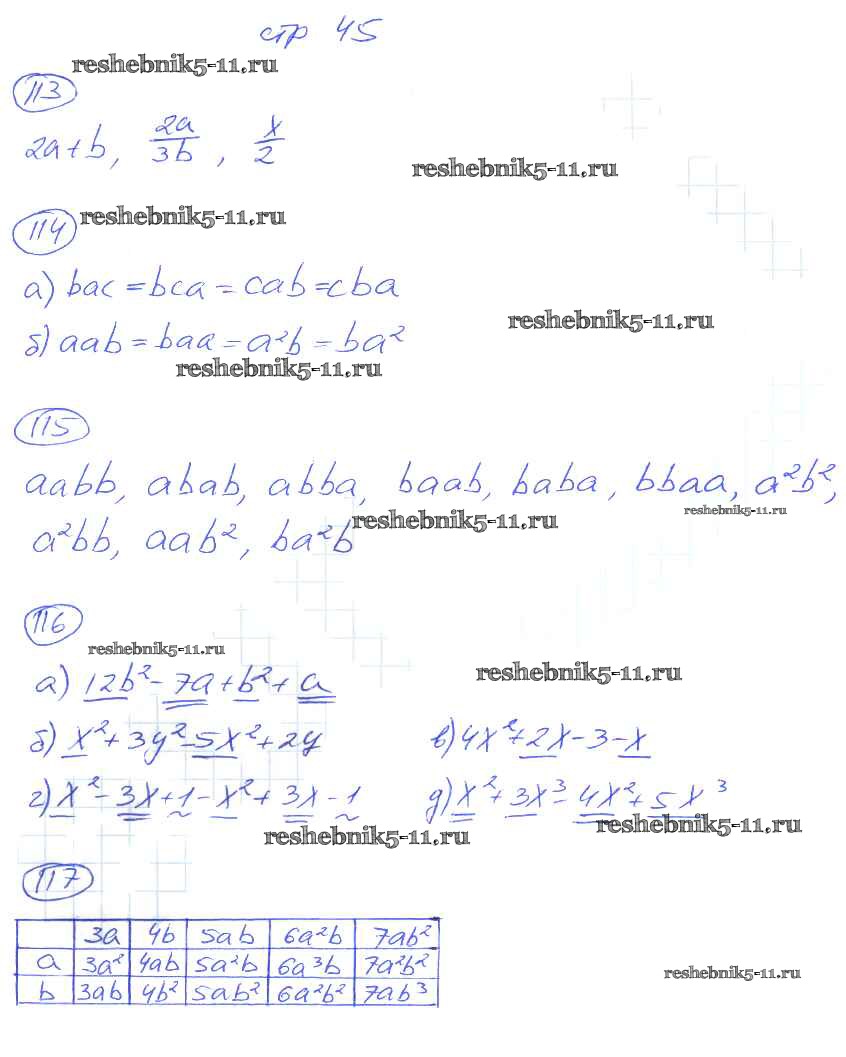 стр 45
reshebnik5-11.ru
113
2a+b, 2a/3b, x/2
reshebnik5-11.ru
114 reshebnik5-11.ru
а) bac = bca = cab = cba
reshebnik5-11.ru
б) aab = baa = a²b = ba²
reshebnik5-11.ru
115
aabb, abab, abba, baab, baba, bbaa, a²b²,
reshebnik5-11.ru
reshebnik5-11.ru
a²bb, aab², ba²b
116
reshebnik5-11.ru
reshebnik5-11.ru
а) 12b² - 7a + b² + a
б) x² + 3y² - 5x² + 2y в) 4x² + 2x - 3 - x
г) x² - 3x + 1 - x² + 3x - 1 д) x² + 3x³ - 4x² + 5x³
reshebnik5-11.ru
reshebnik5-11.ru
117
3a 4b 5ab 6a²b 7ab²
a 3a² 4ab 5a²b 6a³b 7a²b²
b 3ab 4b² 5ab² 6a²b² 7ab³
reshebnik5-11.ru